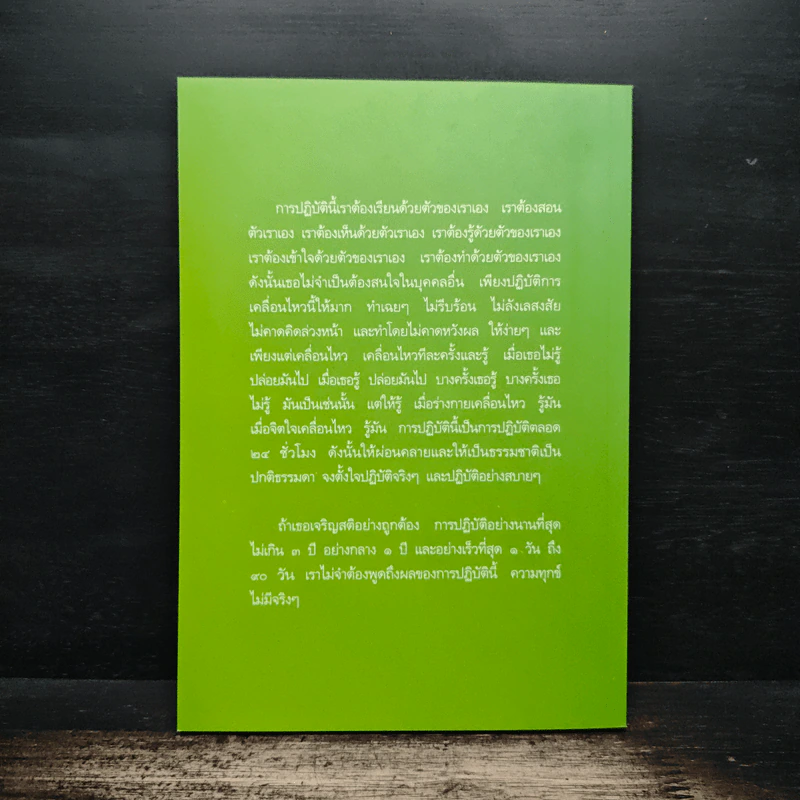 การปฏิบัตินี้เราต้องเรียนด้วยตัวของเราเอง เราต้องสอน
ตัวเราเอง เราต้องเห็นด้วยตัวเราเอง เราต้องรู้ด้วยตัวของเราเอง
เราต้องเข้าใจด้วยตัวของเราเอง เราต้องทำด้วยตัวของเราเอง
ดังนั้นเธอไม่จำเป็นต้องสนใจในบุคคลอื่น เพียงปฏิบัติการ
เคลื่อนไหวนี้ให้มาก ทำเฉยๆ ไม่รีบร้อน ไม่ลังเลสงสัย
ไม่คาดคิดล่วงหน้า และทำโดยไม่คาดหวังผล ให้ง่ายๆ และ
เพียงแต่เคลื่อนไหว เคลื่อนไหวทีละครั้งและรู้ เมื่อเธอไม่รู้
ปล่อยมันไป เมื่อเธอรู้ ปล่อยมันไป บางครั้งเธอรู้ บางครั้งเธอ
ไม่รู้ มันเป็นเช่นนั้น แต่ให้รู้ เมื่อร่างกายเคลื่อนไหว รู้มัน
เมื่อจิตใจเคลื่อนไหว รู้มัน การปฏิบัตินี้เป็นการปฏิบัติตลอด
๒๔ ชั่วโมง ดังนั้นให้ผ่อนคลายและให้เป็นธรรมชาติเป็น
ปกติธรรมดา จงตั้งใจปฏิบัติจริงๆ และปฏิบัติอย่างสบายๆ
ถ้าเธอเจริญสติอย่างถูกต้อง การปฏิบัติอย่างนานที่สุด
ไม่เกิน ๓ ปี อย่างกลาง ๑ ปี และอย่างเร็วที่สุด ๑ วัน ถึง
๙๐ วัน เราไม่จำต้องพูดถึงผลของการปฏิบัตินี้ ความทุกข์
ไม่มีจริงๆ